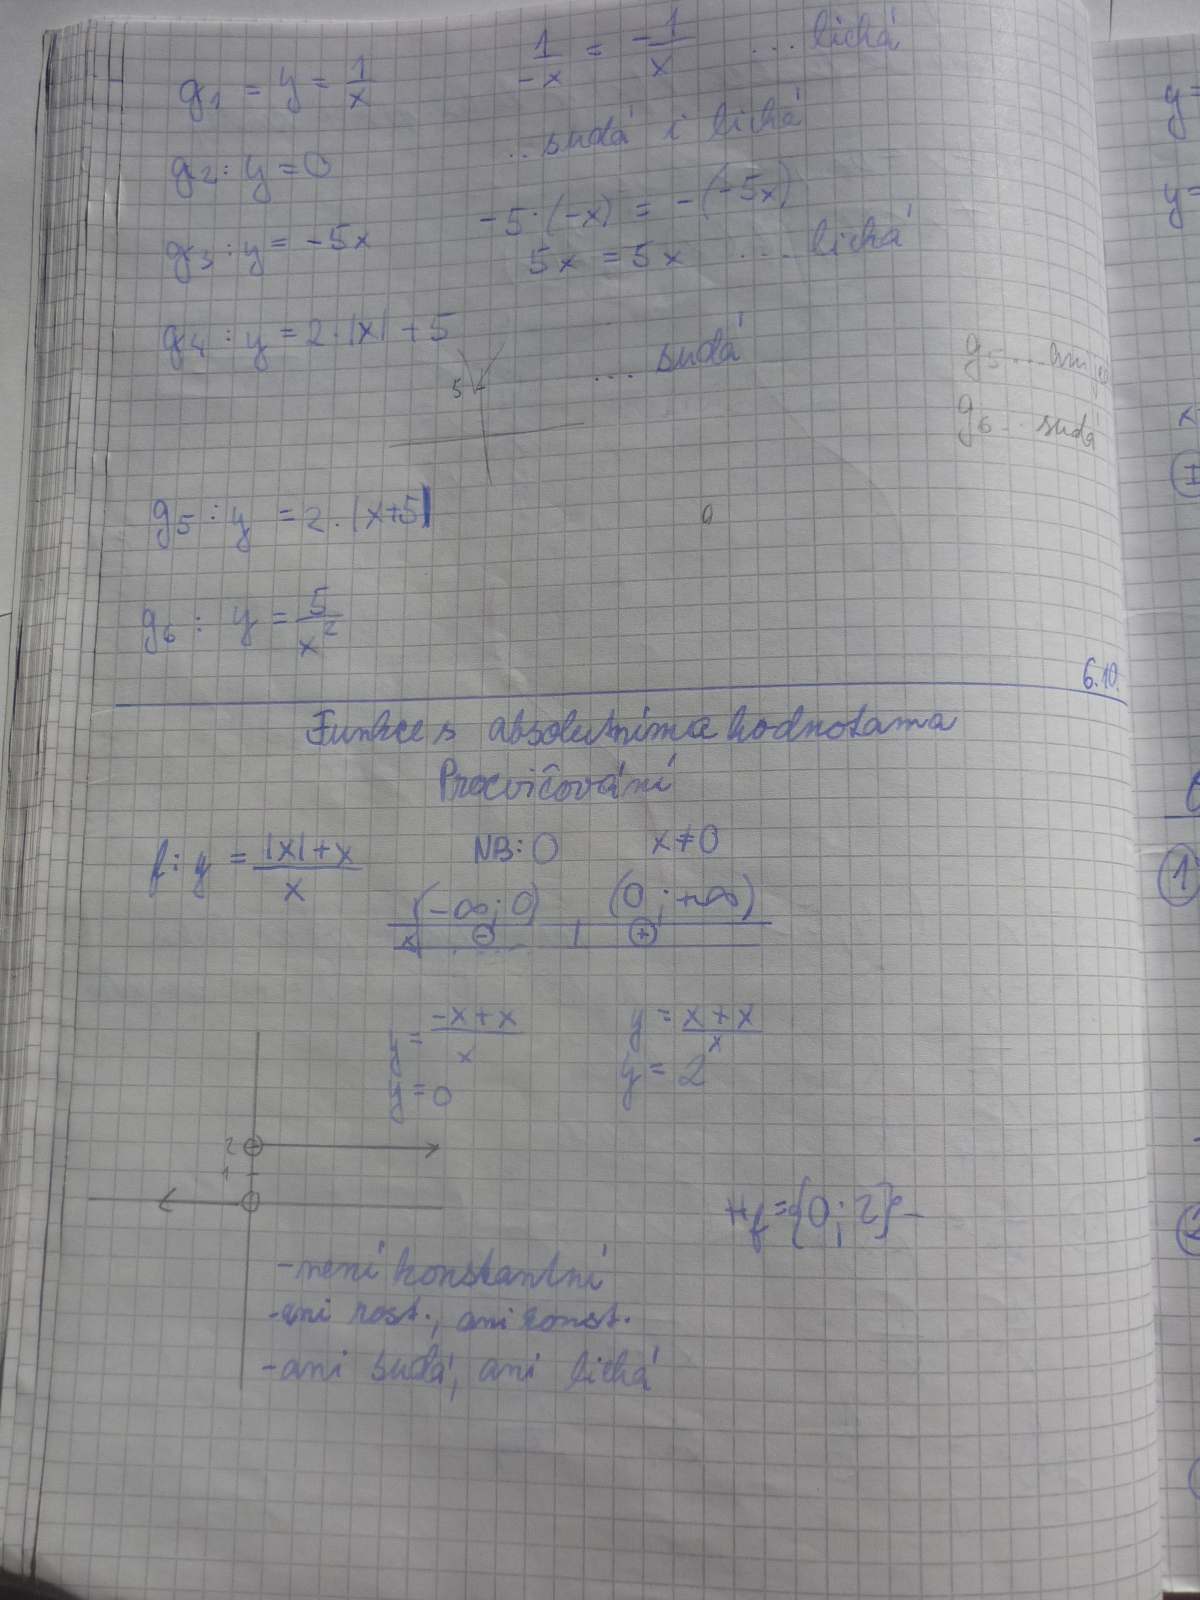 g1 = y = 1/x    1/-x = -1/x ... lichá
g2: y = 0    .. sudá i lichá
g3: y = -5x    -5·(-x) = -(-5x)
5x = 5x ... lichá
g4: y = 2·|x| + 5    ... sudá
5
g5 ... ani
g6 ... sudá
g5: y = 2·|x+5|
g6: y = 5/x²
6.10.
Funkce s absolutníma hodnotama
Procvičování
f: y = |x|+x / x    NB: 0    x≠0
(-∞; 0)    (0; +∞)
x    -    +
y = -x+x / x    y = x+x / x
y = 0    y = 2
2
1
Hf = {0; 2}
- není konstantní
- ani rost., ani konst.
- ani sudá, ani lichá
y=
y=
x
I
1